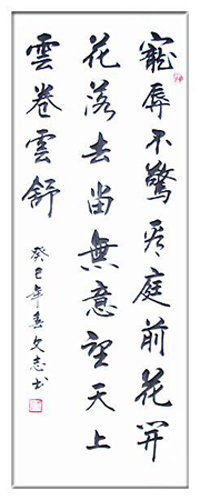 寵辱不驚看庭前花開
花落去留無意望天上
雲卷雲舒
癸巳年春文志书